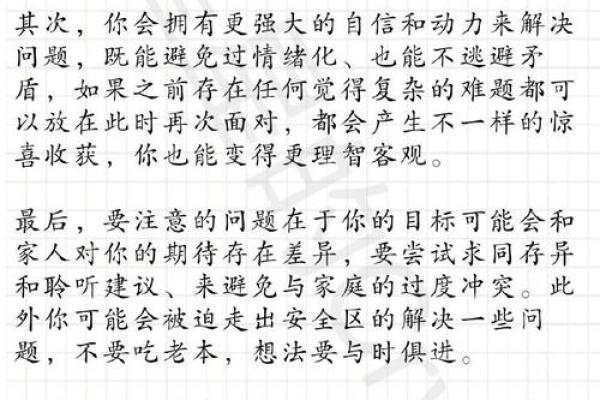 其次，你会拥有更强大的自信和动力来解决
问题，既能避免过情绪化、也能不逃避矛
盾，如果之前存在任何觉得复杂的难题都可
以放在此时再次面对，都会产生不一样的惊
喜收获，你也能变得更理智客观。
最后，要注意的问题在于你的目标可能会和
家人对你的期待存在差异，要尝试求同存异
和聆听建议、来避免与家庭的过度冲突。此
外你可能会被迫走出安全区的解决一些问
题，不要吃老本，想法要与时俱进。